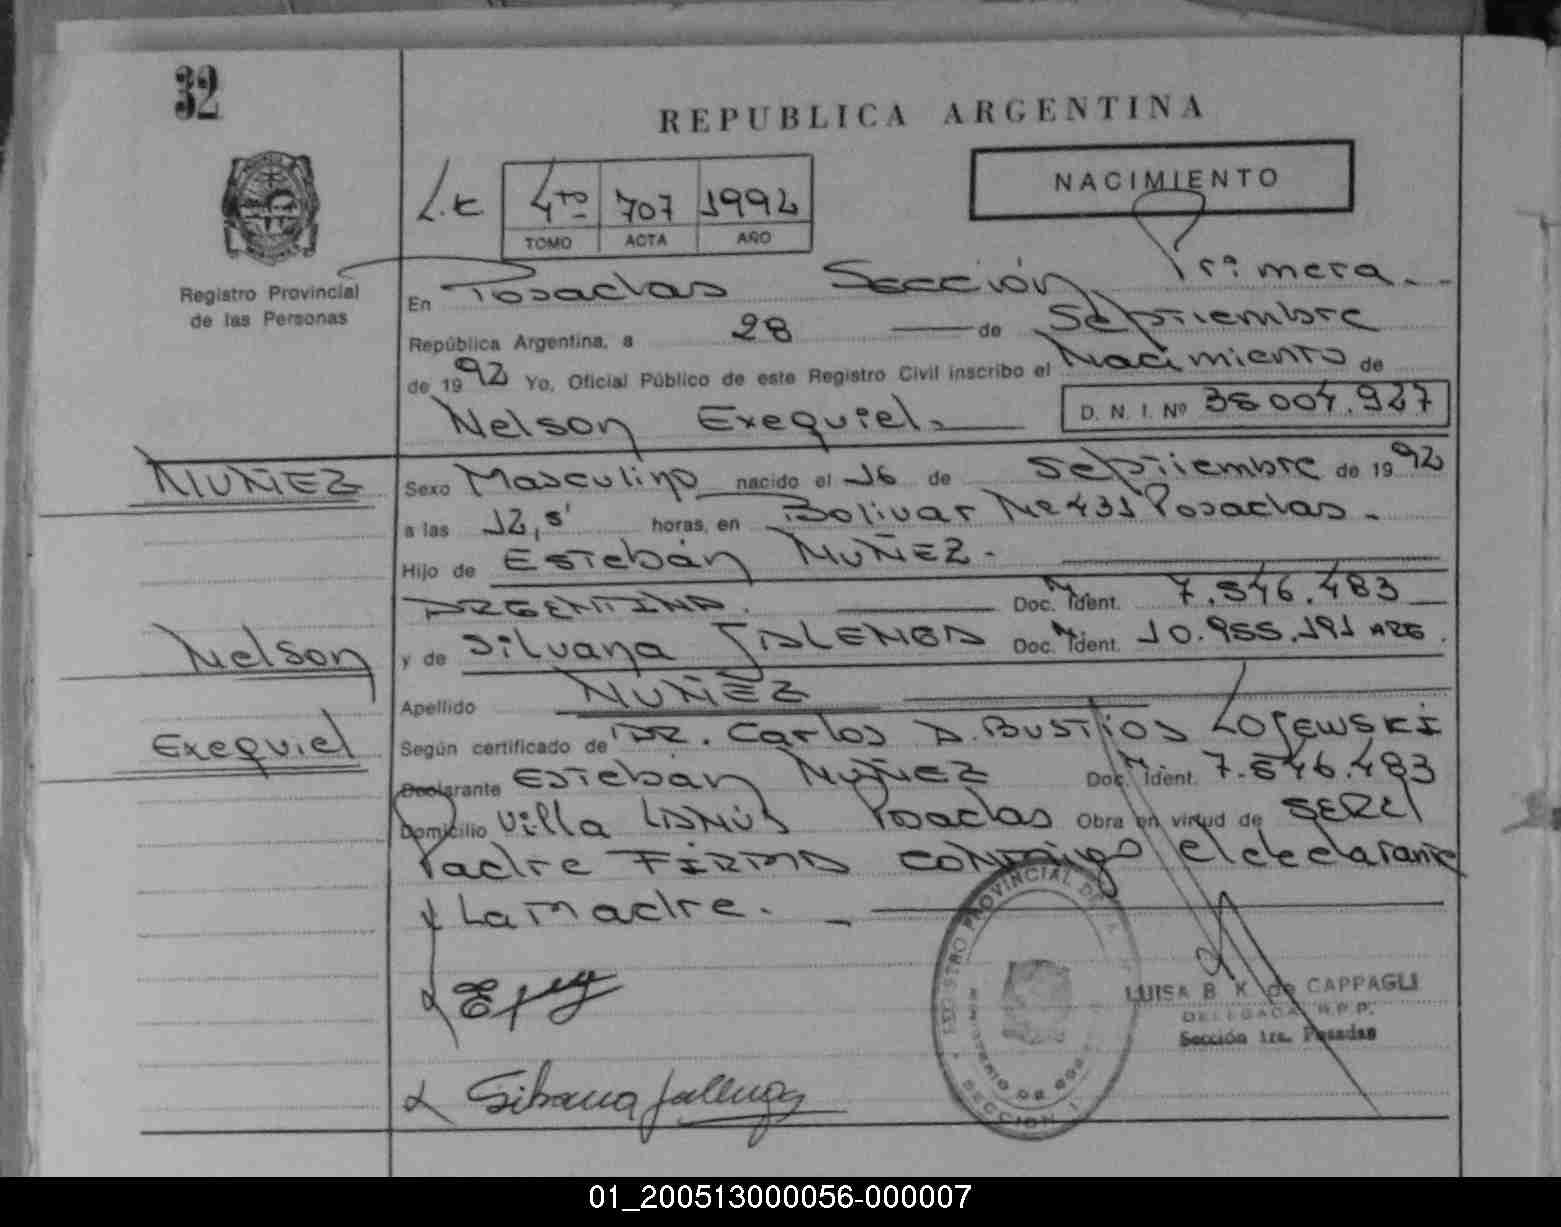 32
REPUBLICA ARGENTINA
NACIMIENTO
L.E 4to 707 1992
TOMO ACTA AÑO
Registro Provincial
de las Personas
En Posadas Sección Primera.
República Argentina, a 28 de Septiembre
de 1992 Yo, Oficial Público de este Registro Civil inscribo el Nacimiento de
Nelson Exequiel. D. N. I. Nº 38.004.927
NUÑEZ
Sexo Masculino nacido el 16 de Septiembre de 1992
a las 12,5' horas, en Bolivar Nº 431 Posadas.
Hijo de Estebán NUÑEZ.
ARGENTINA. Doc. Ident. M 7.546.483
Nelson
y de Silvana Doc. Ident. 10.955.191 ARG.
Apellido NUÑEZ
Exequiel
Según certificado de DR. Carlos A. BUSTOS LOSEWSKI
Declarante Estebán NUÑEZ Doc. Ident. M 7.546.483
Domicilio Villa LANÚS Posadas Obra en virtud de SER el
Padre FIRMA conmigo el declarante
y La madre.
REGISTRO PROVINCIAL DE
SECCION 1
LUISA B. K. de CAPPAGLI
DELEGADA R.P.P.
Sección 1ra. Posadas
01_200513000056-000007